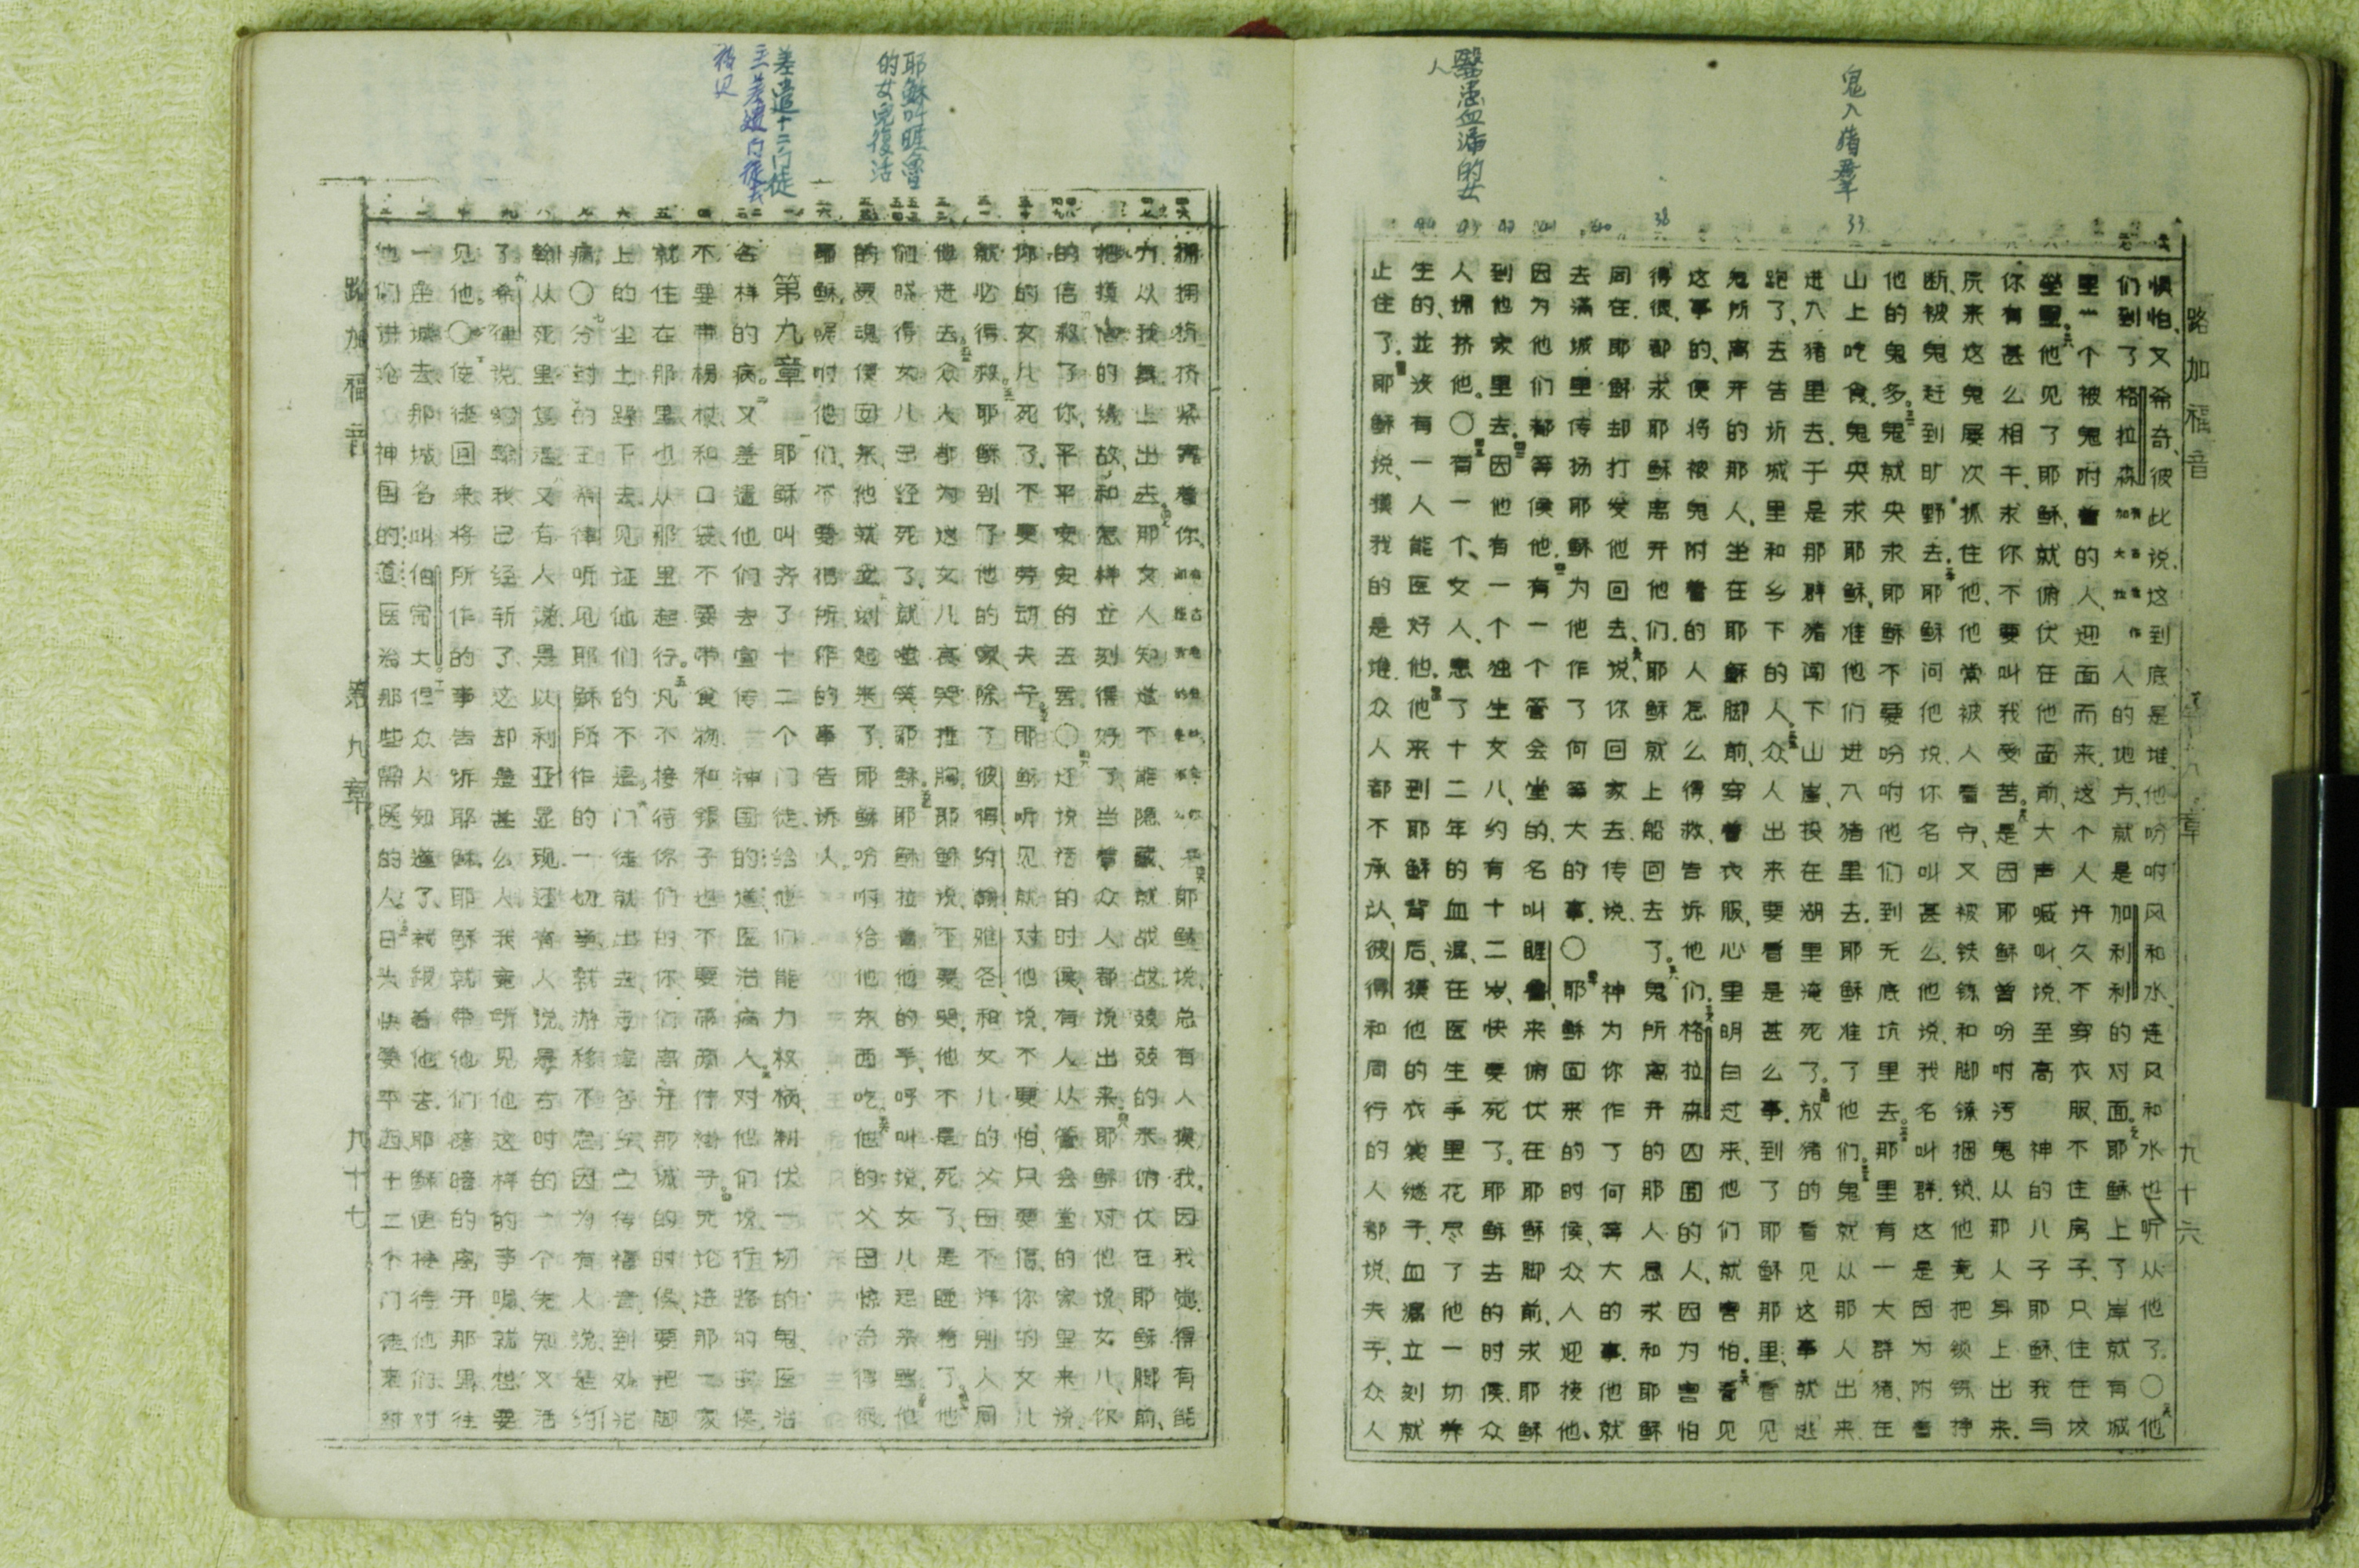 鬼入猪羣
醫患血漏的女
人
33 38
路加福音 第八章 九十六
惧怕、又希奇、彼此说、这到底是谁、他吩咐风和水、连风和水也听从他了。〇他
们到了格拉森人的地方、就是加利利的对面。耶稣上了岸、就有城
里一个被鬼附着的人、迎面而来、这个人许久不穿衣服、不住房子、只住在坟
茔里。他见了耶稣、就俯伏在他面前、大声喊叫、说、至高 神的儿子耶稣、我与
你有甚么相干、求你不要叫我受苦。是因耶稣曾吩咐污鬼从那人身上出来.
原来这鬼屡次抓住他、他常被人看守、又被铁链和脚镣捆锁、他竟把锁链挣
断、被鬼赶到旷野去。耶稣问他说、你名叫甚么.他说、我名叫群.这是因为附着
他的鬼多。鬼就央求耶稣不要吩咐他们到无底坑里去。那里有一大群猪、在
山上吃食.鬼央求耶稣、准他们进入猪里去.耶稣准了他们。鬼就从那人出来、
进入猪里去.于是那群猪闯下山崖、投在湖里淹死了。放猪的看见这事就逃
跑了、去告诉城里和乡下的人。众人出来要看是甚么事.到了耶稣那里、看见
鬼所离开的那人、坐在耶稣脚前、穿着衣服、心里明白过来、他们就害怕。看见
这事的、便将被鬼附着的人怎么得救、告诉他们。格拉森四围的人、因为害怕
得很、都求耶稣离开他们.耶稣就上船回去了。鬼所离开的那人、恳求和耶稣
同在.耶稣却打发他回去、说、你回家去、传说 神为你作了何等大的事.他就
去满城里传扬耶稣为他作了何等大的事.〇耶稣回来的时候、众人迎接他、
因为他们都等候他.有一个管会堂的、名叫睚鲁、来俯伏在耶稣脚前、求耶稣
到他家里去.因他有一个独生女儿、约有十二岁、快要死了。耶稣去的时候、众
人拥挤他。〇有一个女人、患了十二年的血漏、在医生手里花尽了他一切养
生的、並没有一人能医好他.他来到耶稣背后、摸他的衣裳繸子、血漏立刻就
止住了。耶稣说、摸我的是谁.众人都不承认、彼得和同行的人都说、夫子、众人
耶穌叫睚魯
的女兒復活
差遣十二门徒
主差遣门徒去
拥拥挤挤紧靠着你、耶稣说、总有人摸我.因我觉得有能
力以我身上出去。那女人知道不能隐藏、就战战兢兢的来俯伏在耶稣脚前、
把摸他的缘故、和怎样立刻得好了、当着众人都说出来.耶稣对他说、女儿、你
的信救了你、平平安安的去罢.〇还说话的时候、有人从管会堂的家里来说、
你的女儿死了、不要劳动夫子.耶稣听见就对他说、不要怕、只要信、你的女儿
就必得救。耶稣到了他的家、除了彼得、约翰、雅各、和女儿的父母、不许别人同
他进去。众人都为这女儿哀哭捶胸.耶稣说、不要哭、他不是死了、是睡着了.他
们晓得女儿已经死了、就嗤笑耶稣.耶稣拉着他的手、呼叫说、女儿起来罢.他
的灵魂便回来、他就立刻起来了.耶稣吩咐给他东西吃.他的父母惊奇得很.
耶稣嘱咐他们、不要把所作的事告诉人.
第九章 耶稣叫齐了十二个门徒、给他们能力权柄、制伏一切的鬼、医治
各样的病。又差遣他们去宣传 神国的道、医治病人.对他们说、行路的时候、
不要带柺杖和口袋、不要带食物和银子、也不要带两件褂子.无论进那一家、
就住在那里、也从那里起行。凡不接待你们的、你们离开那城的时候、要把脚
上的尘土跺下去、见证他们的不是.门徒就出去、走遍各乡、宣传福音、到处治
病.〇分封的王希律听见耶稣所作的一切事、就游移不定.因为有人说、是约
翰从死里复活.又有人说、是以利亚显现.还有人说、是古时的一个先知又活
了.希律说、约翰我已经斩了、这却是甚么人、我竟听见他这样的事呢、就想要
见他.〇使徒回来、将所作的事告诉耶稣.耶稣就带他们暗暗的离开那里、往
一座城去、那城名叫伯赛大.但众人知道了、就跟着他去.耶稣便接待他们、对
他们讲论 神国的道、医治那些需医的人.日头快要平西、十二个门徒来对
路加福音 第九章 九十七